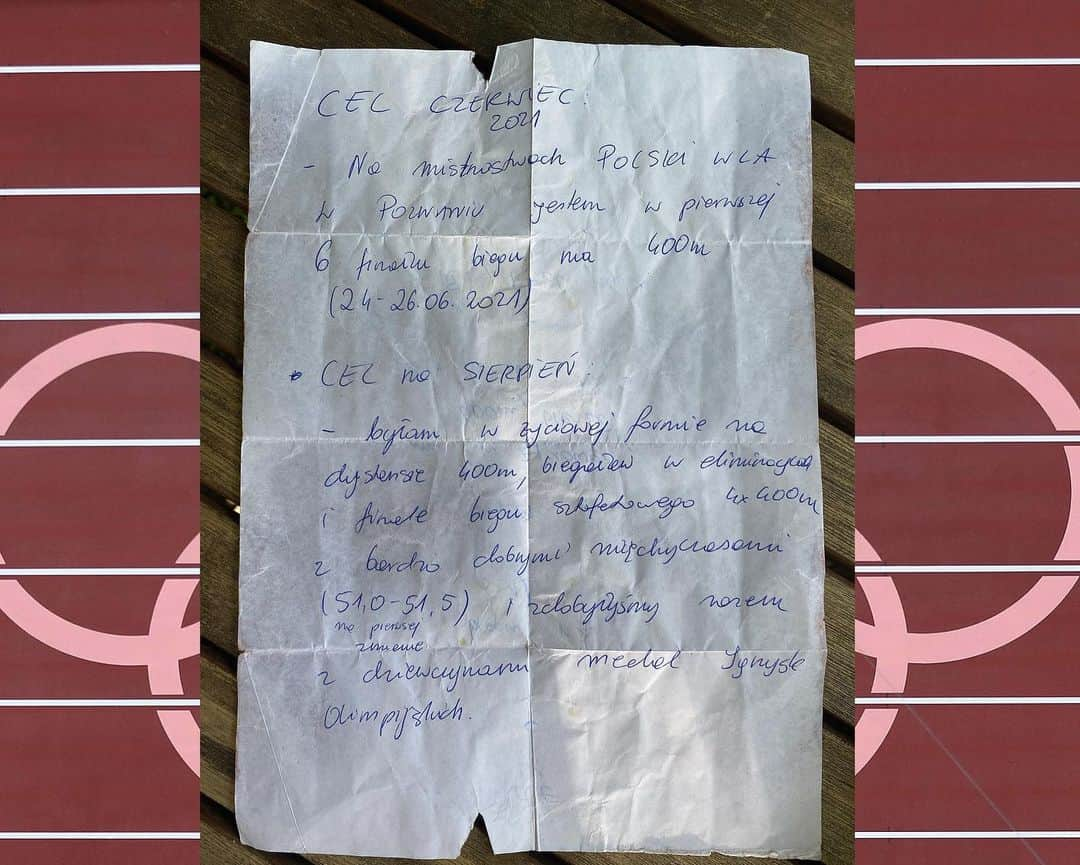 CEL CZERWIEC:
2021
- Na mistrzostwach POLSKI W LA
w POZNANIU jestem w pierwszej
6 finału biegu na 400m
(24-26.06.2021)
• CEL na SIERPIEŃ:
- byłam w życiowej formie na
dystansie 400m, biegałam w eliminacjach
i finale biegu sztafetowego 4x400m
z bardzo dobrymi międzyczasami
(51,0-51,5) i zdobyłyśmy razem
na pierwszej
zmianie
z dziewczynami medal Igrzysk
Olimpijskich.